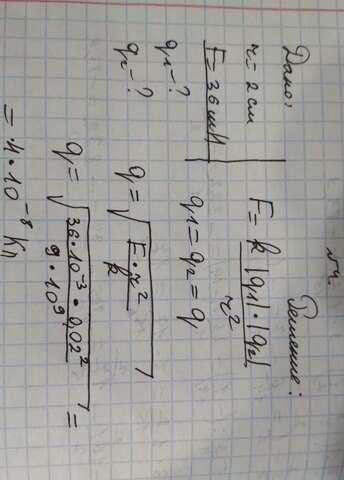 №4.
Дано:
r = 2 см
F = 36 мН
q₁ - ?
q₂ - ?
Решение:
F = k |q₁| · |q₂| / r²
q₁ = q₂ = q
q = √(F · r² / k)
q = √(36 · 10⁻³ · 0,02² / 9 · 10⁹) =
= 4 · 10⁻⁸ Кл